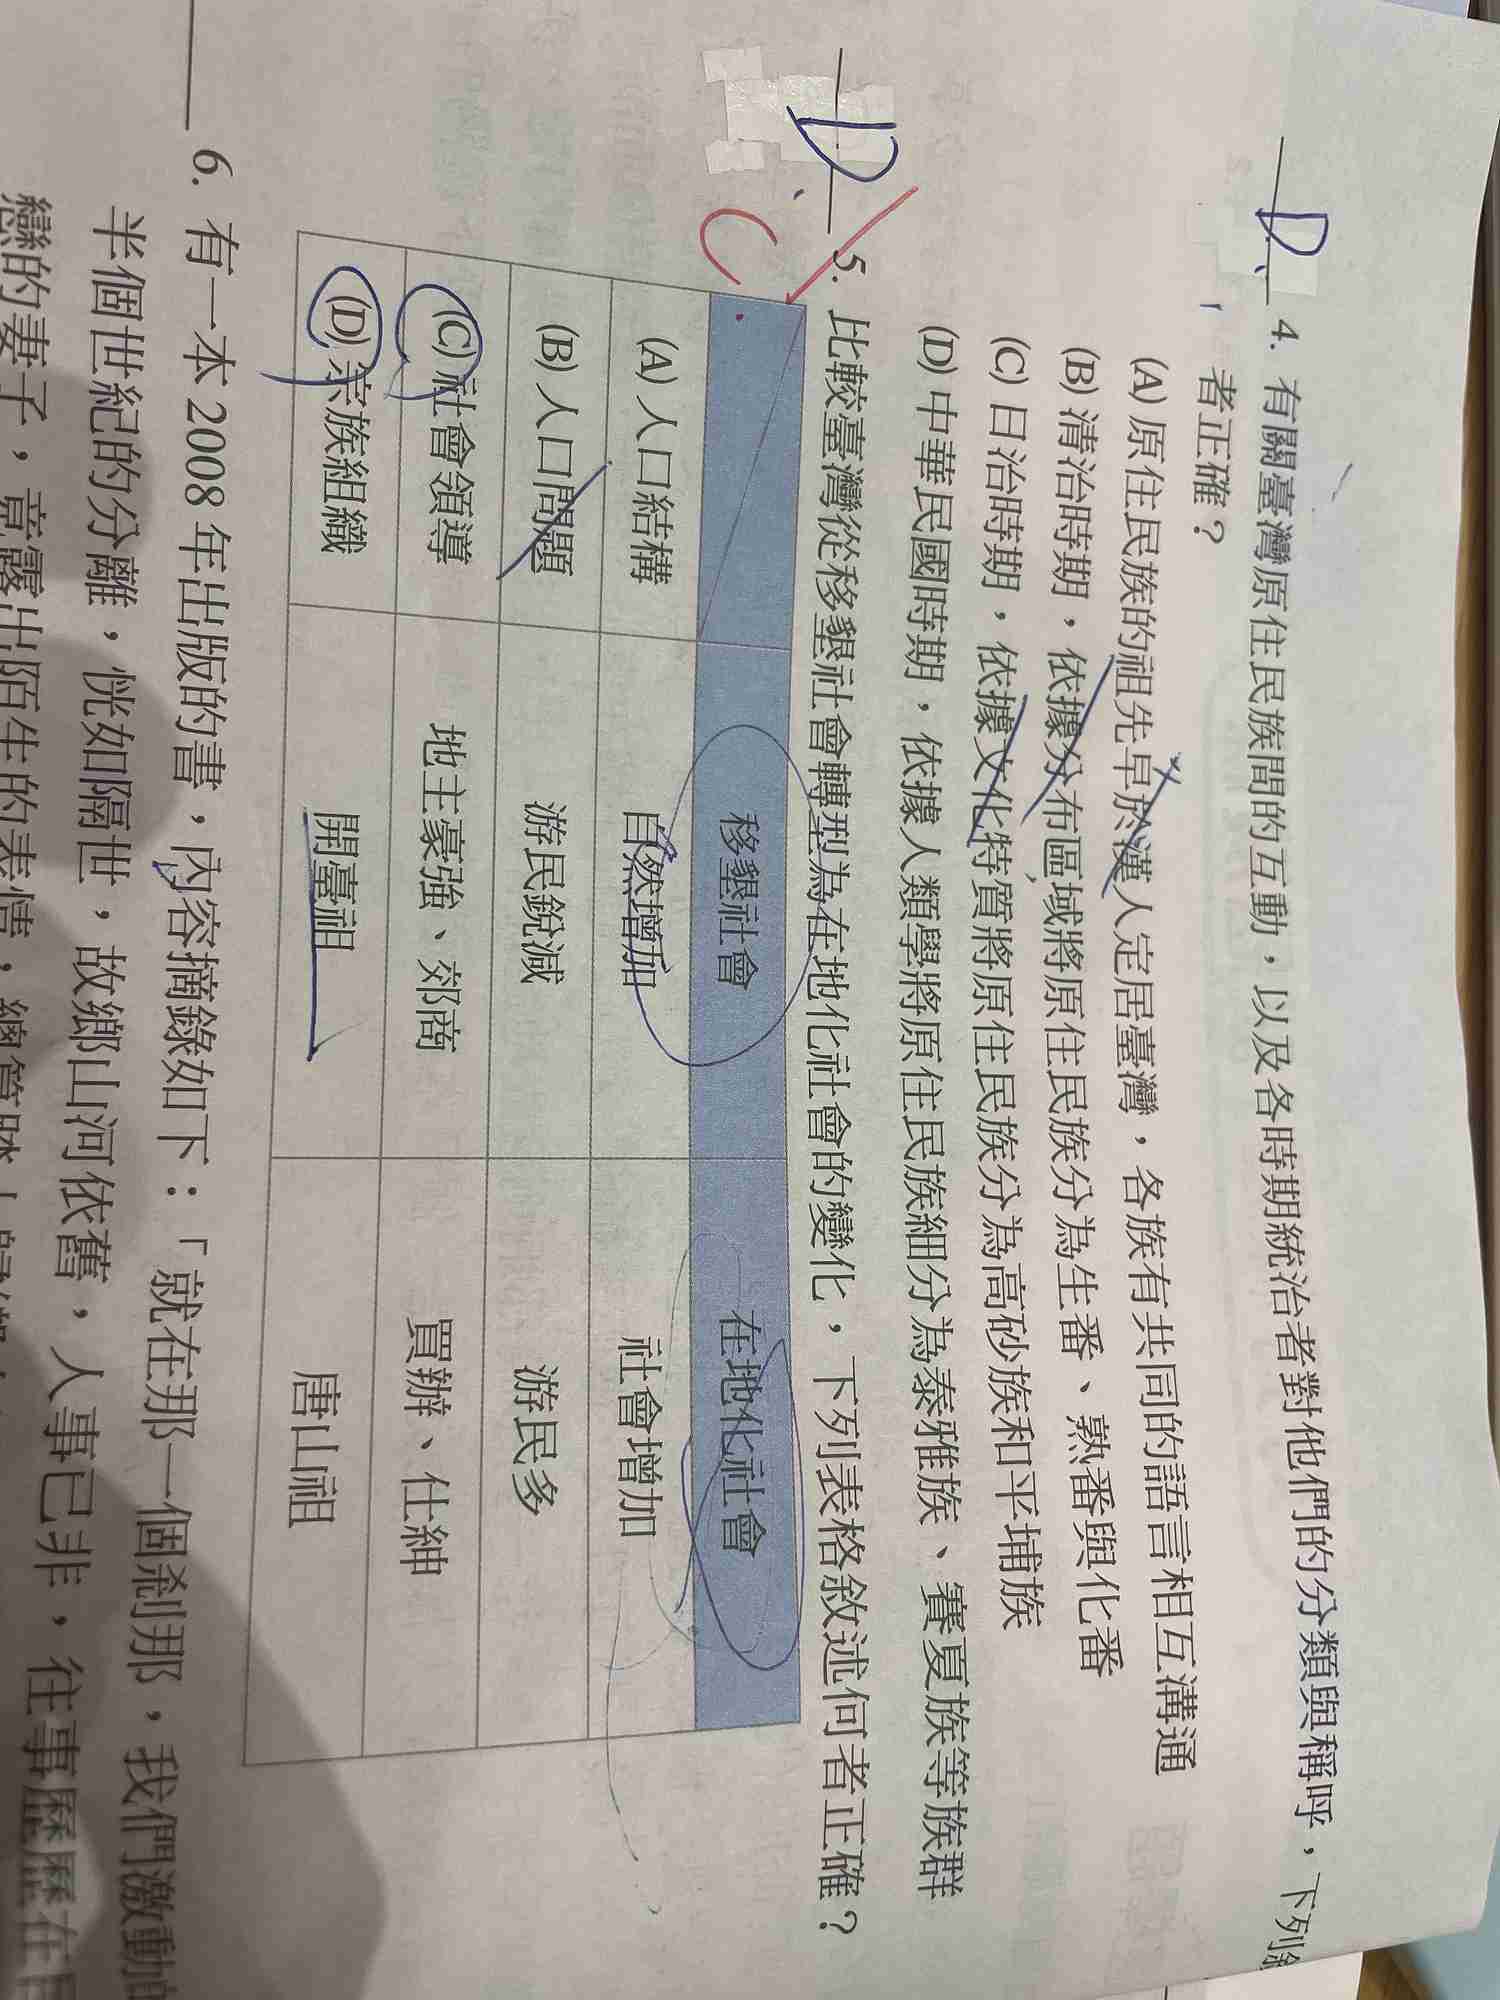 D.
4. 有關臺灣原住民族間的互動，以及各時期統治者對他們的分類與稱呼，下列敘
者正確？
(A) 原住民族的祖先早於漢人定居臺灣，各族有共同的語言相互溝通
(B) 清治時期，依據分布區域將原住民族分為生番、熟番與化番
(C) 日治時期，依據文化特質將原住民族分為高砂族和平埔族
(D) 中華民國時期，依據人類學將原住民族細分為泰雅族、賽夏族等族群
D.
C
5. 比較臺灣從移墾社會轉型為在地化社會的變化，下列表格敘述何者正確？
移墾社會 在地化社會
(A) 人口結構 自然增加 社會增加
(B) 人口問題 游民銳減 游民多
(C) 社會領導 地主豪強、郊商 買辦、仕紳
(D) 宗族組織 開臺祖 唐山祖
6. 有一本 2008 年出版的書，內容摘錄如下：「就在那一個剎那，我們激動
半個世紀的分離，恍如隔世，故鄉山河依舊，人事已非，往事歷歷在目
戀的妻子，竟露出陌生的表情，